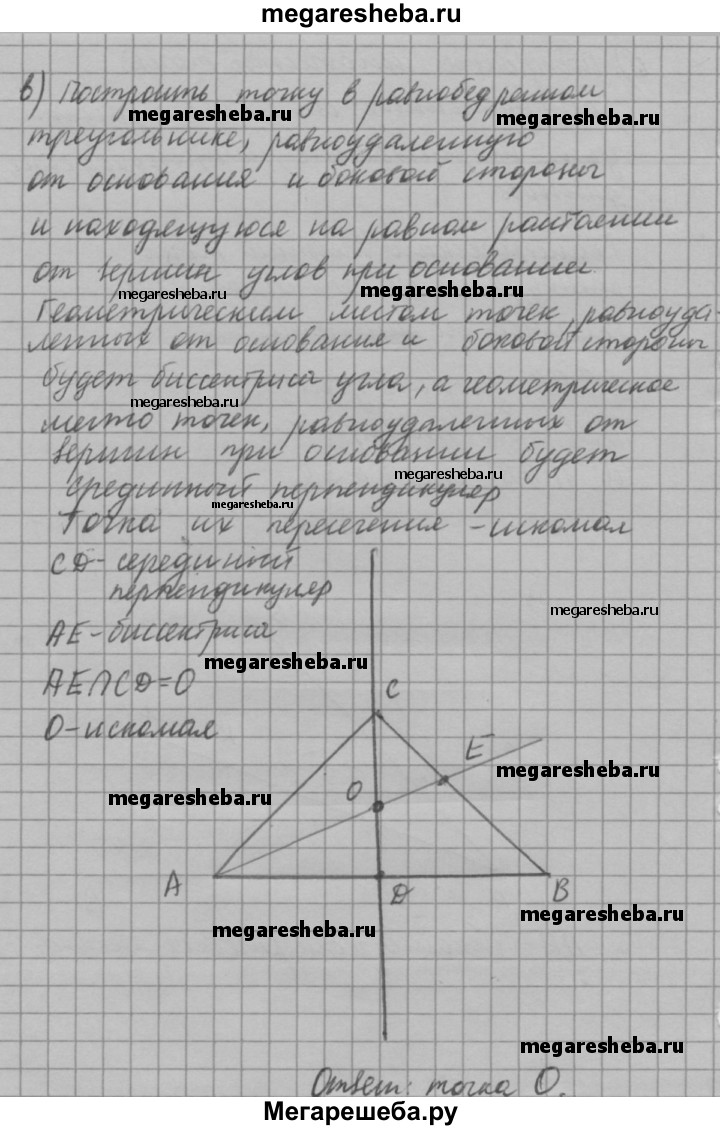 megaresheba.ru
в) Построить точку в равнобедренном
megaresheba.ru
megaresheba.ru
треугольнике, равноудаленную
от основания и боковой стороны
и находящуюся на равном расстоянии
от вершин углов при основании.
megaresheba.ru
megaresheba.ru
Геометрическим местом точек, равноуда-
ленных от основания и боковой стороны
будет биссектриса угла, а геометрическое
megaresheba.ru
место точек, равноудаленных от
вершин при основании будет
megaresheba.ru
серединный перпендикуляр
megaresheba.ru
Точка их пересечения - искомая
CD - серединный
перпендикуляр
megaresheba.ru
AE - биссектриса
megaresheba.ru
AE∩CD=O
C
O - искомая
E
megaresheba.ru
O
megaresheba.ru
A
D
B
megaresheba.ru
megaresheba.ru
megaresheba.ru
Ответ: точка O.
Мегарешеба.ру